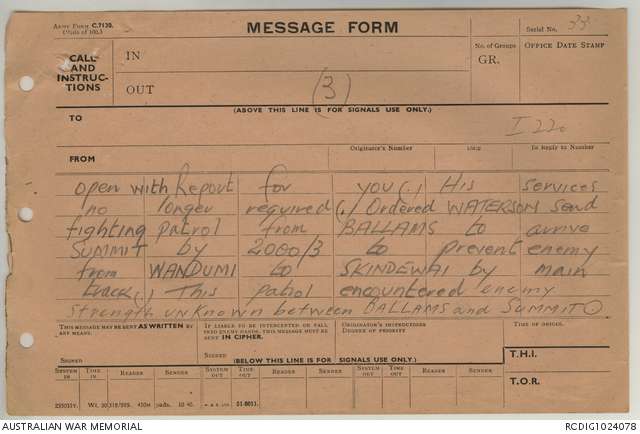 ARMY FORM C.2128.
(Pads of 100.)
MESSAGE FORM
Serial No. 33
CALL
AND
INSTRUC-
TIONS
IN
OUT
(3)
No. of Groups
GR.
OFFICE DATE STAMP
(ABOVE THIS LINE IS FOR SIGNALS USE ONLY.)
TO
I 220
FROM
Originator's Number
Date
In Reply to Number
open with Report for you (.) His services
no longer required (.) Ordered WATERSON send
fighting patrol from BALLAMS to arrive
SUMMIT by 2000/3 to prevent enemy
from WANDUMI to SKINDEWAI by main
track (.) This patrol encountered enemy
strength unknown between BALLAMS and SUMMIT (.)
THIS MESSAGE MAY BE SENT AS WRITTEN BY
ANY MEANS.
IF LIABLE TO BE INTERCEPTED OR FALL
INTO ENEMY HANDS, THIS MESSAGE MUST BE
SENT IN CIPHER.
ORIGINATOR'S INSTRUCTIONS
DEGREE OF PRIORITY
TIME OF ORIGIN.
SIGNED
SIGNED
(BELOW THIS LINE IS FOR SIGNALS USE ONLY.)
T.H.I.
SYSTEM IN
TIME IN
READER
SENDER
SYSTEM OUT
TIME OUT
READER
SENDER
SYSTEM OUT
TIME OUT
READER
SENDER
T.O.R.
51-8011.
AUSTRALIAN WAR MEMORIAL
RCDIG1024078